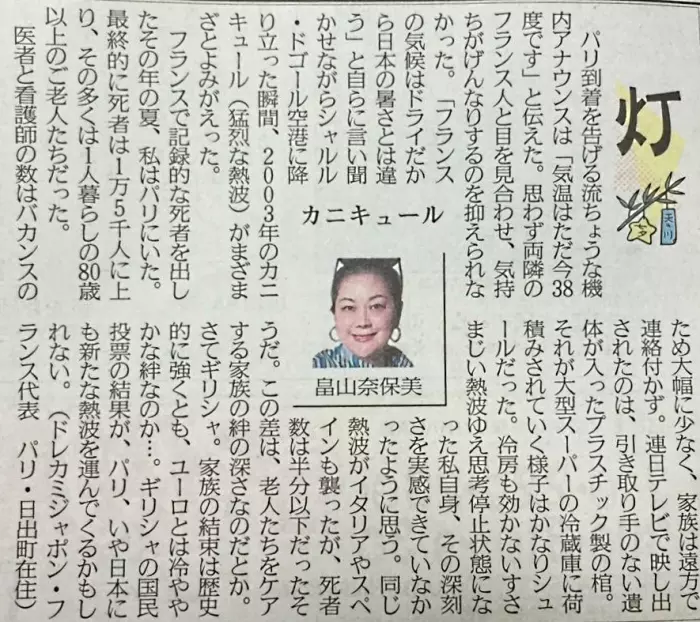 灯
天の川
カニキュール
畠山奈保美
パリ到着を告げる流ちょうな機
内アナウンスは「気温はただ今38
度です」と伝えた。思わず両隣の
フランス人と目を見合わせ、気持
ちがげんなりするのを抑えられな
かった。「フランス
の気候はドライだか
ら日本の暑さとは違
う」と自らに言い聞
かせながらシャルル
・ドゴール空港に降
り立った瞬間、2003年のカニ
キュール(猛烈な熱波)がまざま
ざとよみがえった。
フランスで記録的な死者を出し
たその年の夏、私はパリにいた。
最終的に死者は1万5千人に上
り、その多くは1人暮らしの80歳
以上のご老人たちだった。
医者と看護師の数はバカンスの
ため大幅に少なく、家族は遠方で
連絡付かず。連日テレビで映し出
されたのは、引き取り手のない遺
体が入ったプラスチック製の棺。
それが大型スーパーの冷蔵庫に荷
積みされていく様子はかなりシュ
ールだった。冷房も効かないすさ
まじい熱波ゆえ思考停止状態にな
った私自身、その深刻
さを実感できていなか
ったように思う。同じ
熱波がイタリアやスペ
インも襲ったが、死者
数は半分以下だったそ
うだ。この差は、老人たちをケア
する家族の絆の深さなのだとか。
さてギリシャ。家族の結束は歴史
的に強くとも、ユーロとは冷やや
かな絆なのか…。ギリシャの国民
投票の結果が、パリ、いや日本に
も新たな熱波を運んでくるかもし
れない。(ドレカミジャポン・フ
ランス代表 パリ・日出町在住)